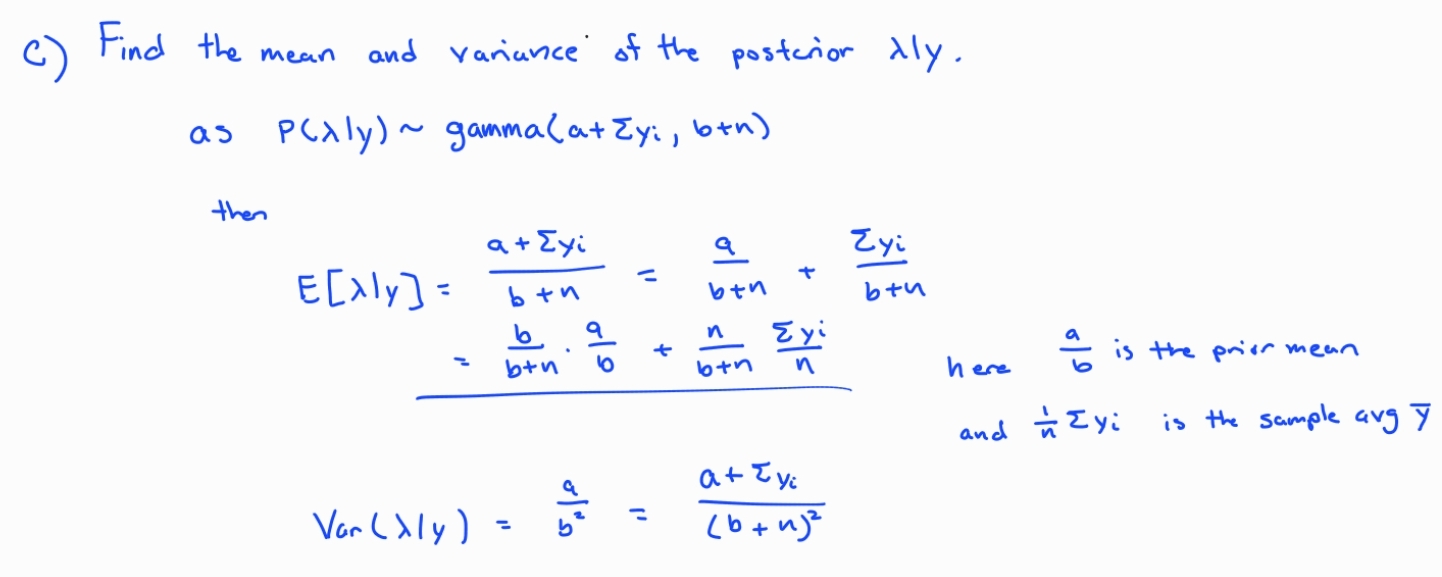 c) Find the mean and variance of the posterior λ|y.
as P(λ|y) ~ gamma(a+Σyi, b+n)
then
E[λ|y] = (a+Σyi)/(b+n) = a/(b+n) + Σyi/(b+n)
= b/(b+n) · a/b + n/(b+n) Σyi/n
here a/b is the prior mean
and 1/n Σyi is the sample avg ȳ
Var(λ|y) = a/b² = (a+Σyi)/(b+n)²